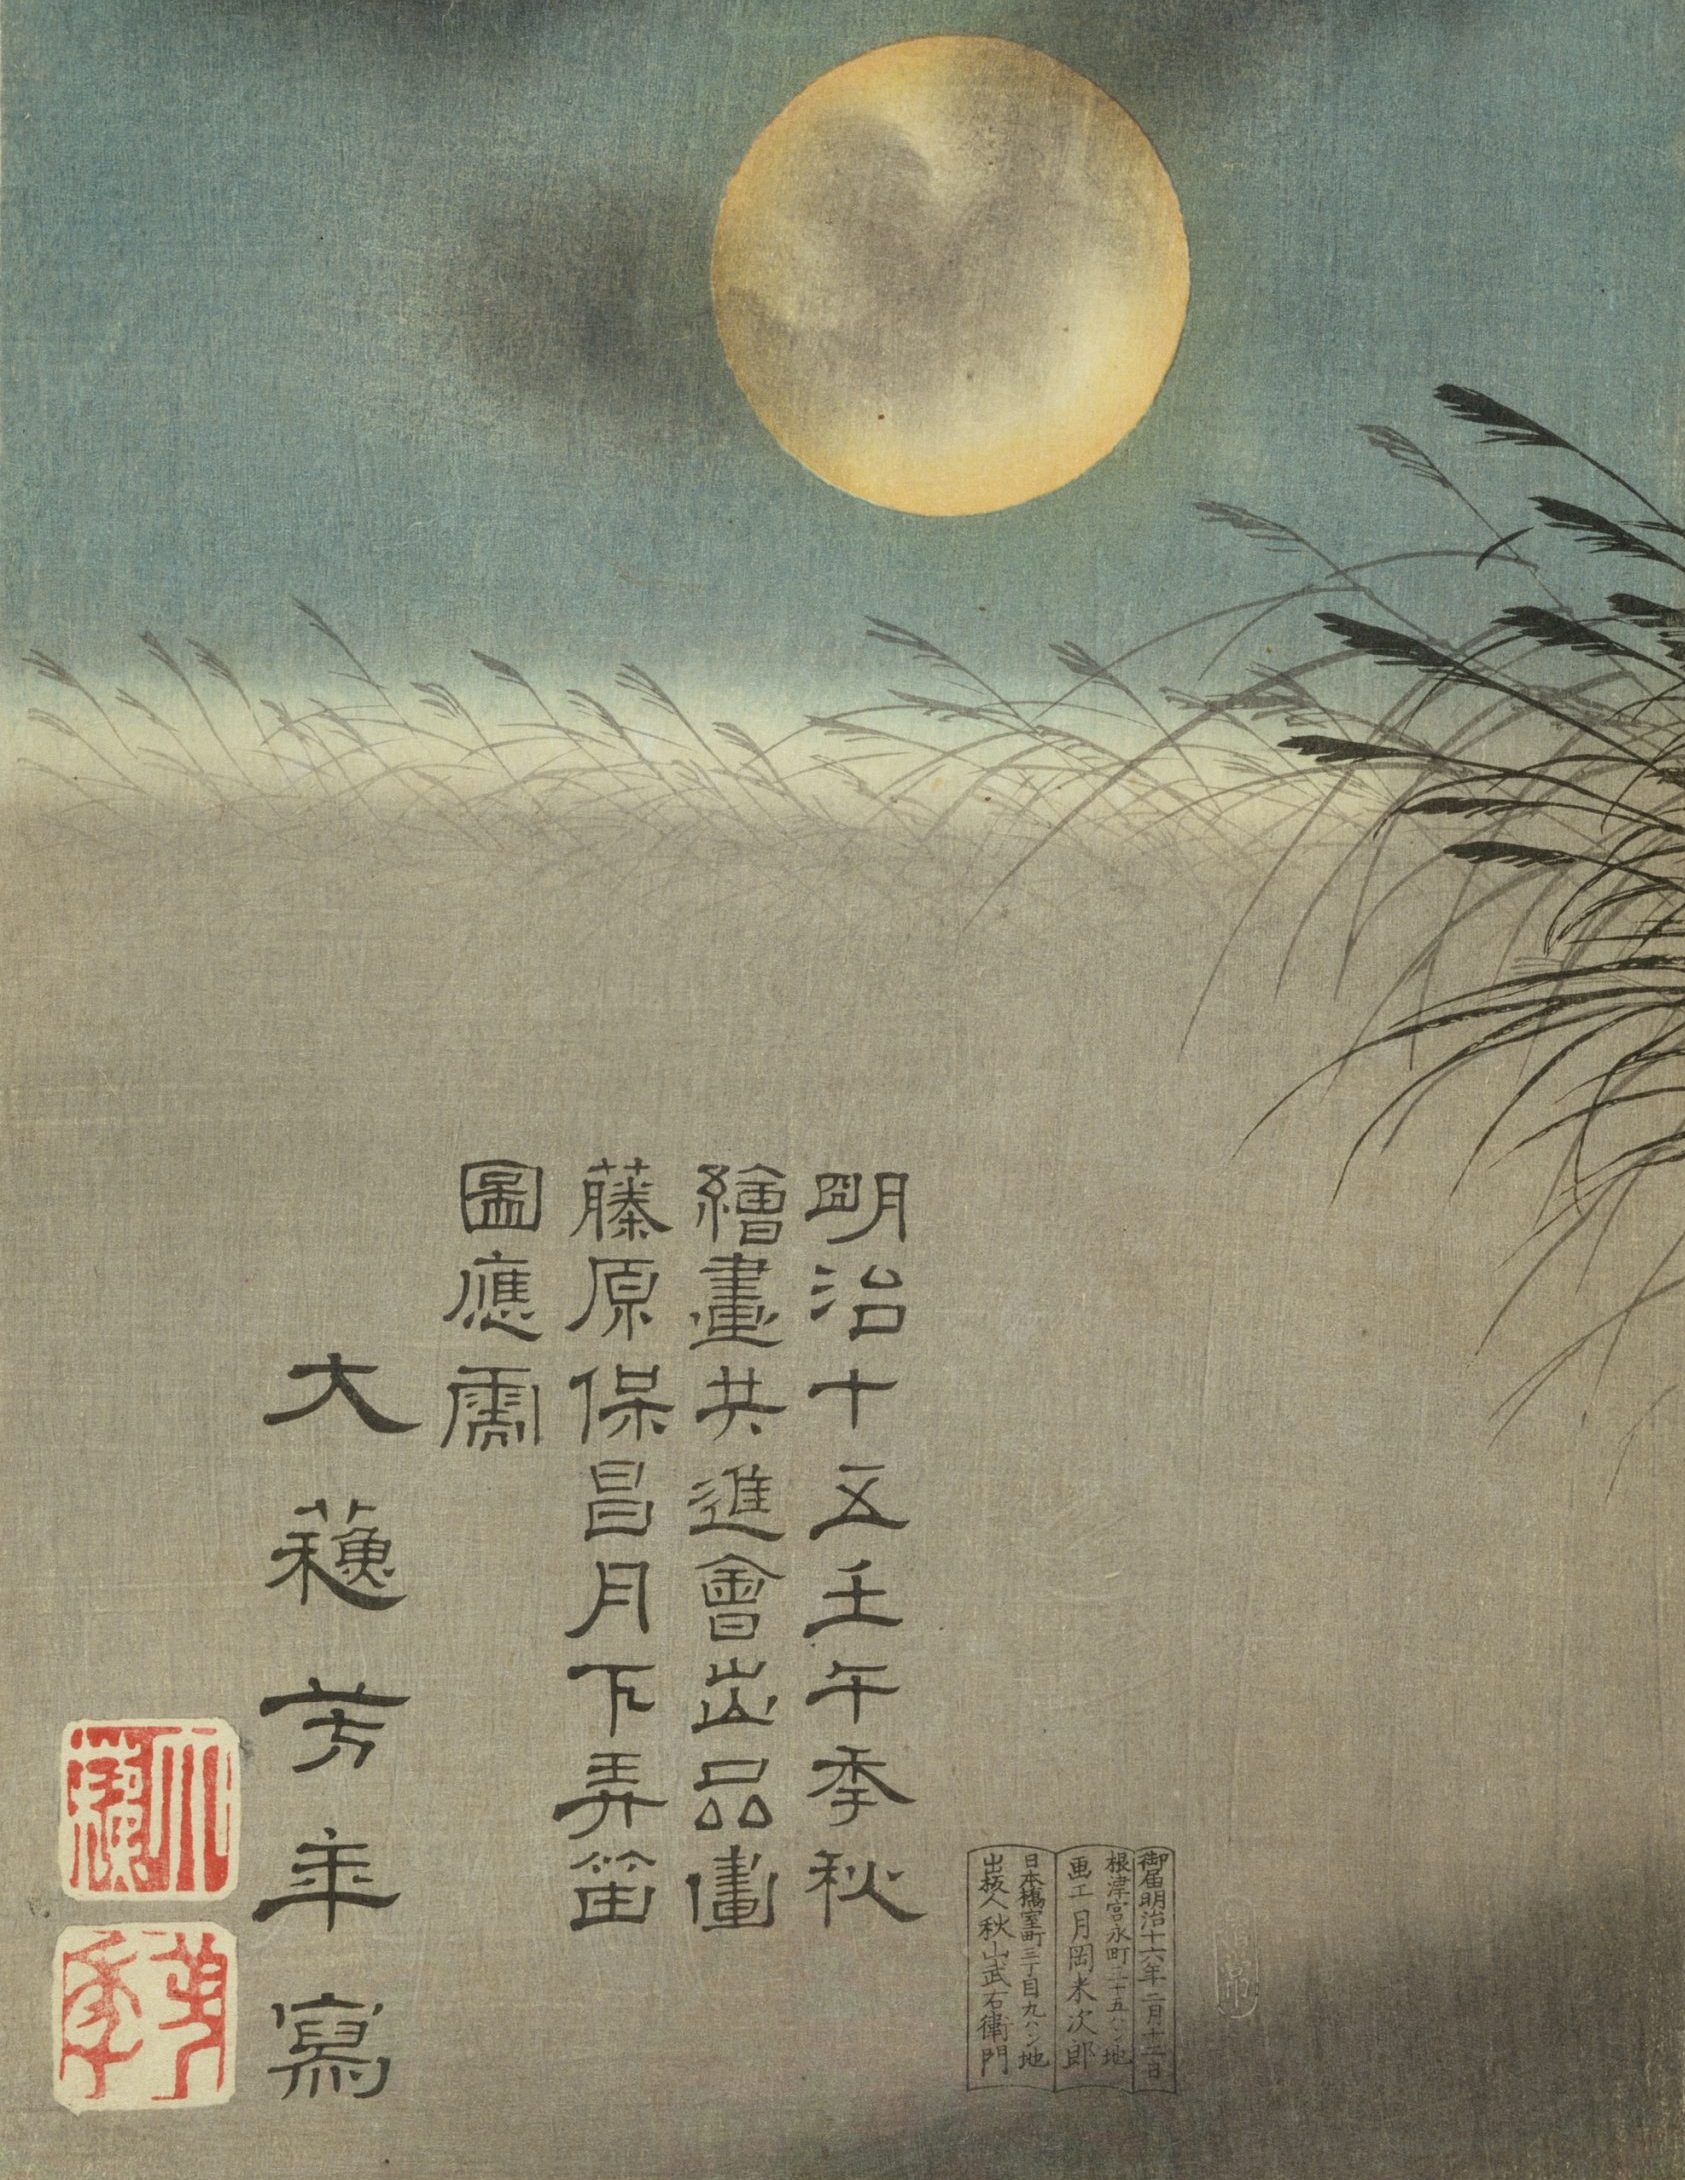 明治十五壬午季秋
繪畫共進會出品畫
藤原保昌月下弄笛
圖應需
大蘓芳年寫
大蘓
芳年
御届明治十六年二月十二日
根津宮永町三十五ハン地
画工月岡米次郎
日本橋室町三丁目九ハン地
出板人秋山武右衛門